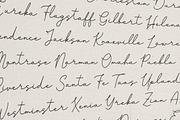 Eureka Flagstaff Gilbert Helena
Jackson Knoxville
Montrose Norman Omaha Pueblo
Riverside Santa Fe Taos Upland
Westminster Xenia Yreka Zion